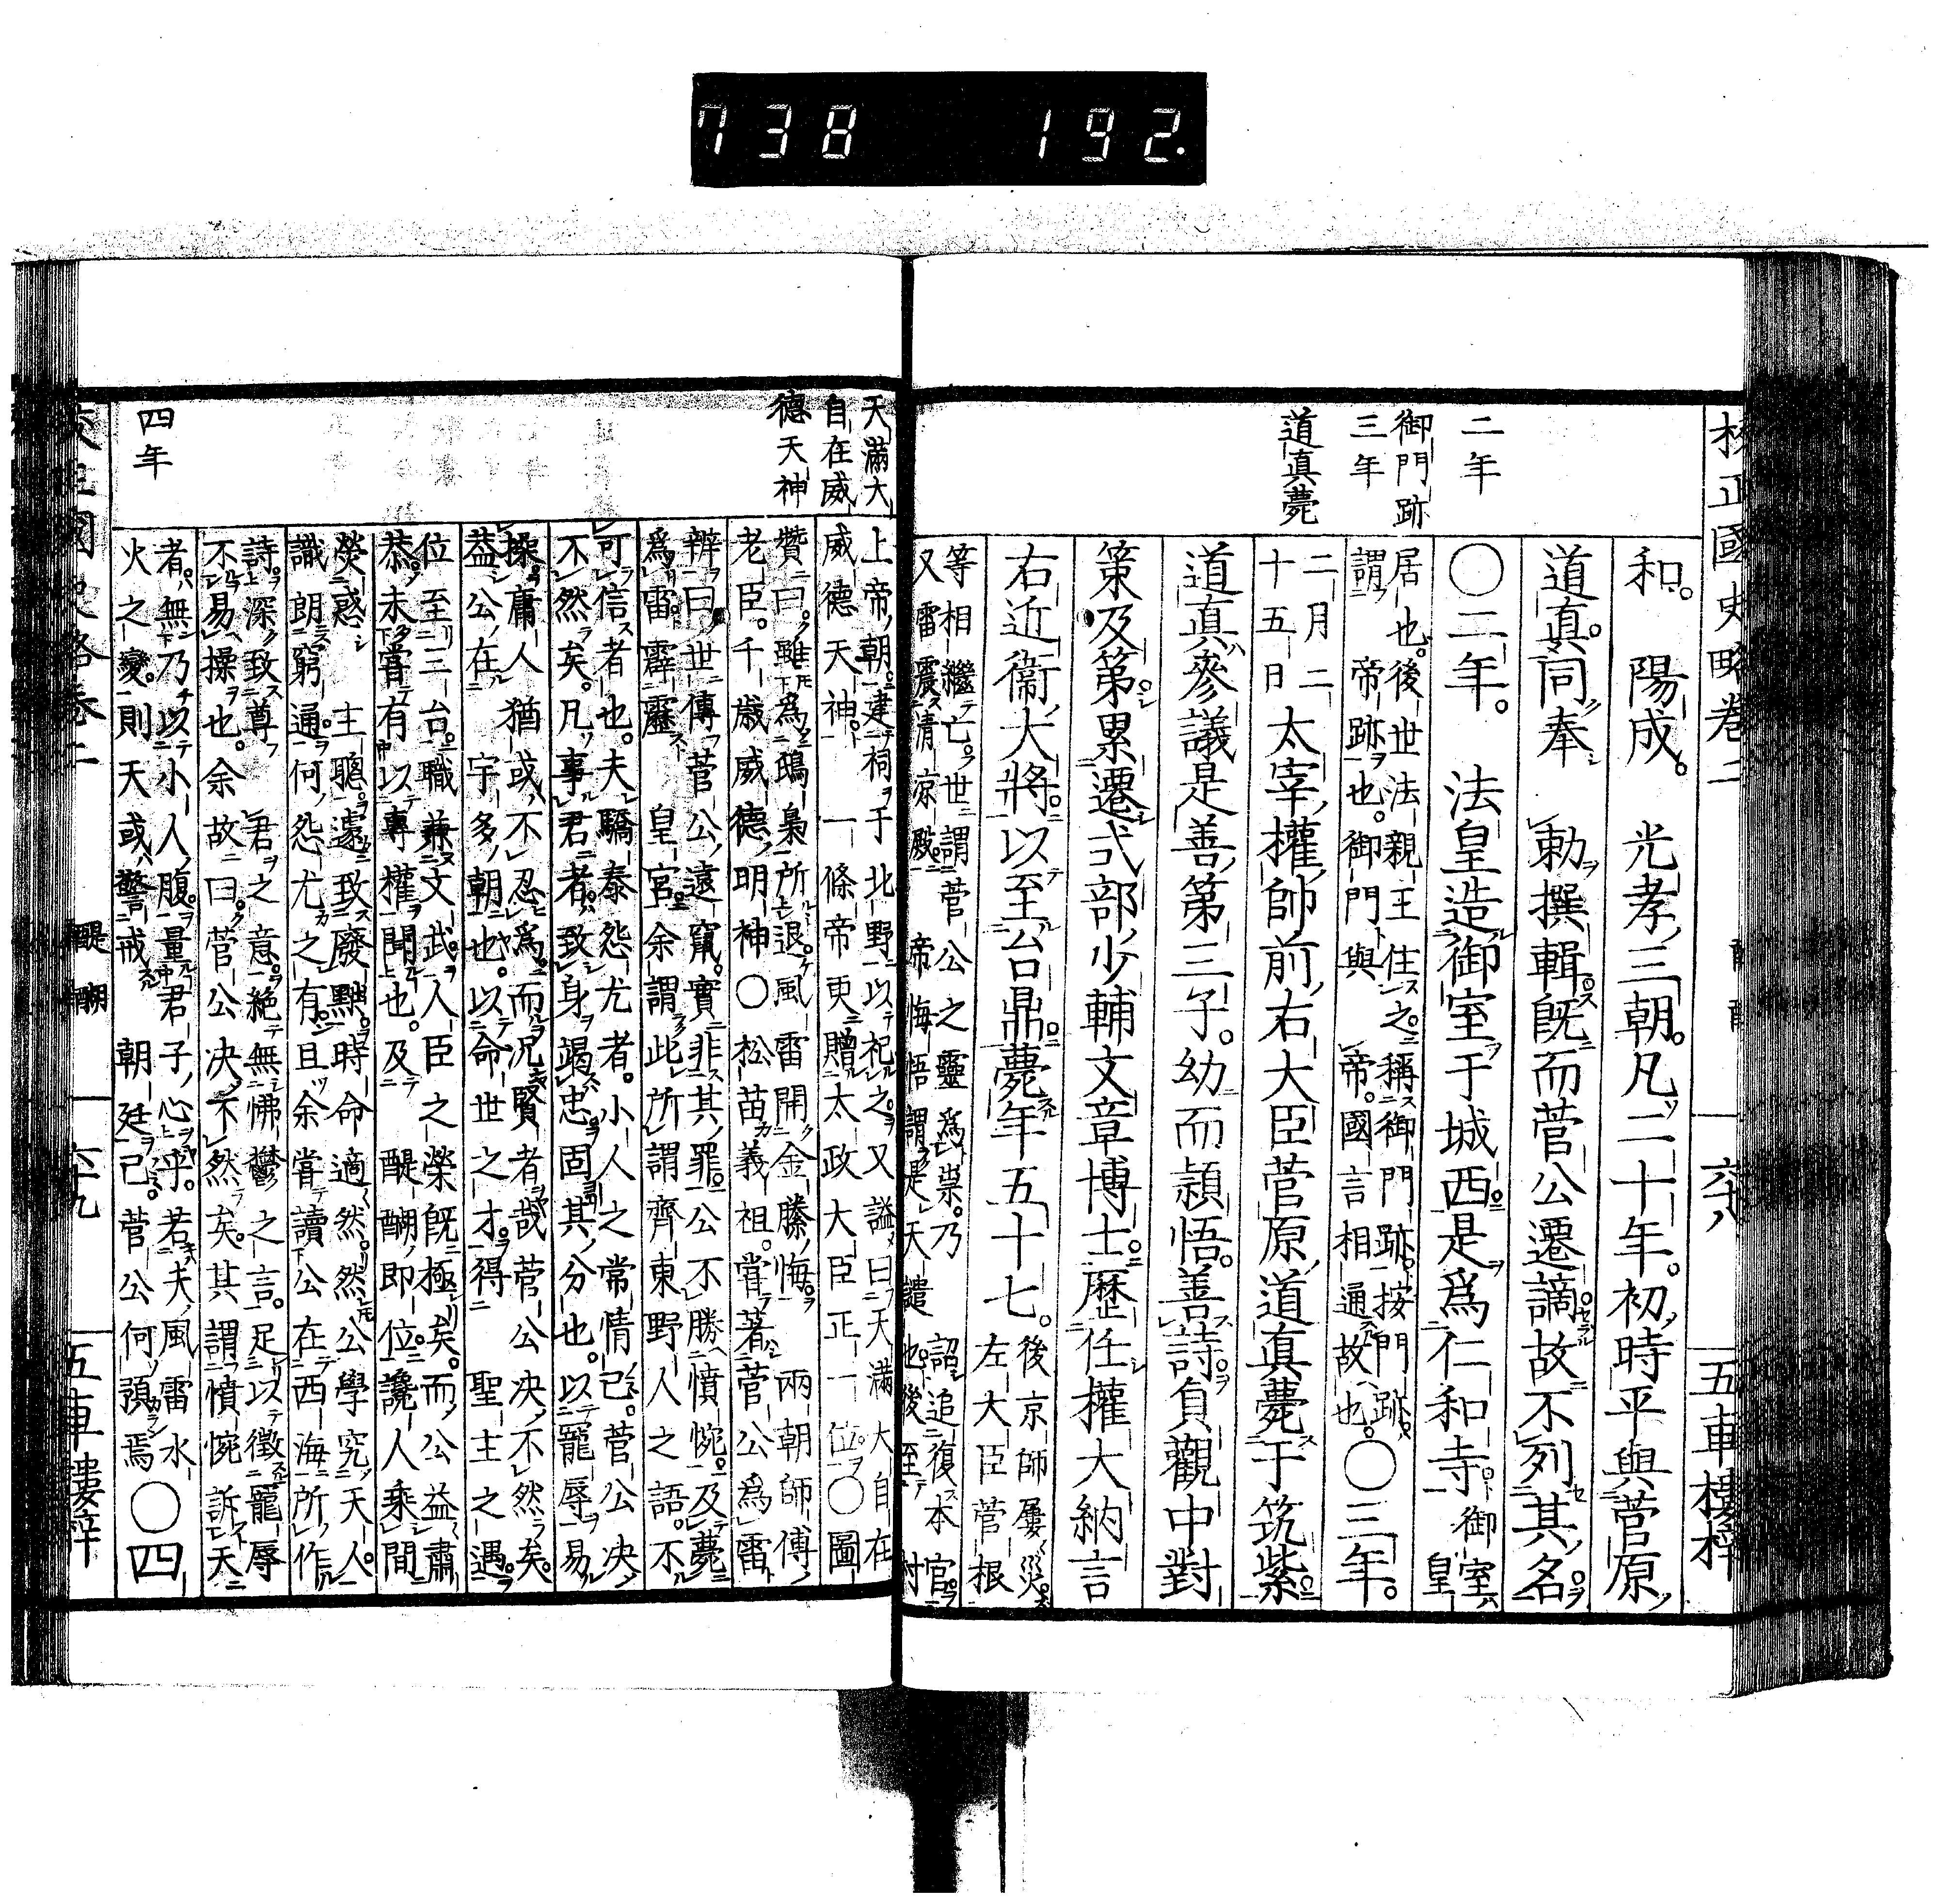 738 192.
校正國史略卷二
六十八
五車樓梓
二年
御門跡
三年
道真薨
和。陽成。光孝三朝。凡二十年。初時平與菅原
道真。同奉勅撰輯。既而菅公遷謫。故不列其名。
〇二年。法皇造御室于城西。是爲仁和寺。御室皇
居也。後世法親王住之。稱御門跡。按門跡。
謂帝跡也。御門與帝。國言相通故也。〇三年。
二月二
十五日太宰權帥前右大臣菅原道真薨于筑紫。
道真參議是善第三子。幼而頴悟。善詩負觀中對
策及第。累遷式部少輔文章博士。歷任權大納言
右近衞大將。以至台鼎。薨年五十七。後京師屢災。
左大臣菅根
等相繼亡。世謂菅公之靈爲祟。乃詔追復本官。
又雷震清凉殿帝悔悟謂是天譴也。後至村
天滿大
自在威
德天神
上帝朝建祠于北野以祀之。又謚曰天滿大自在
威德天神。一條帝更贈太政大臣正一位〇圖
贊曰。雖爲鴟梟所退。風雷開金縢悔。兩朝師傅
老臣。千歳威德明神〇松苗義祖。嘗著菅公爲雷
辨曰。世傳菅公遠竄。實非其罪。公不勝憤惋。及薨
爲雷霹靂皇宮余謂此所謂齊東野人之語。不
可信者也。夫驕泰怨尤者。小人之常情已。菅公決
不然矣。凡事君者。致身竭忠。固其分也。以寵辱易
操。庸人猶或不忍爲。而況賢者哉菅公決不然矣。
益公在宇多朝也。以命世之才。得聖主之遇。
位至三台。職兼文武。人臣之榮既極矣。而公益肅
恭。未嘗有以專權聞也。及醍醐即位。讒人乘間
熒惑主聰。遽致廢黜。時命適然。然公學究天人。
識朗窮通。何怨尤之有。且余嘗讀公在西海所作
詩。深致尊君之意。絕無怫鬱之言。足以徵寵辱
不易操也。余故曰。菅公決不然矣。其謂憤惋訴天
者。無乃以小人腹。量君子心乎。若夫風雷水
火之變。則天或警戒朝廷已。菅公何預焉〇四
四年
醍醐
六十九
五車樓梓